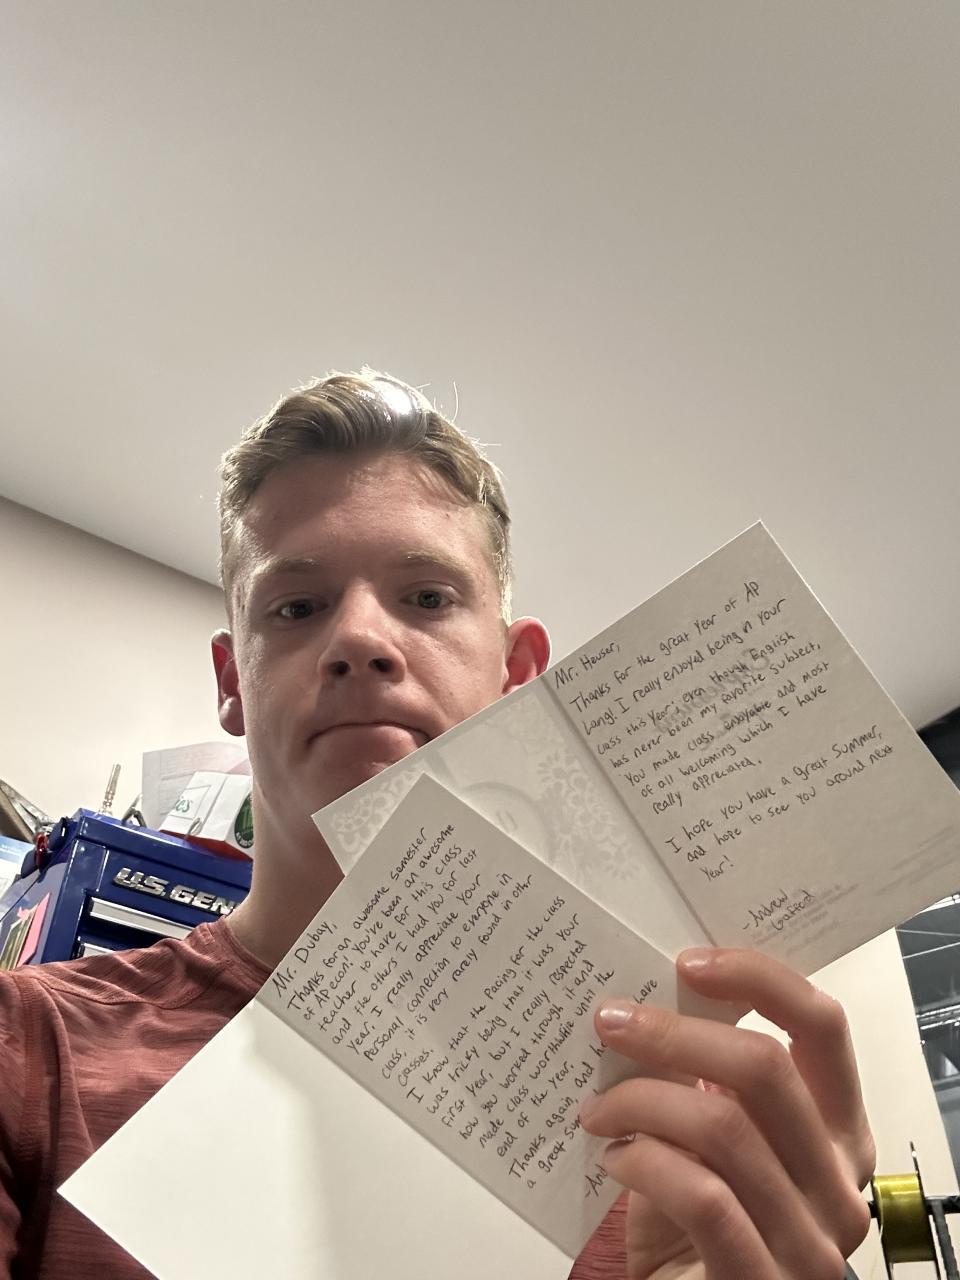 Mr. Heuser,
Thanks for the great year of AP
Lang! I really enjoyed being in your
class this year, even though English
has never been my favorite subject,
You made class enjoyable and most
of all welcoming which I have
really appreciated.
I hope you have a great Summer,
and hope to see you around next
Year!
-Andrew
Mr. Dubay,
Thanks for an awesome semester
of AP econ! You've been an awesome
teacher to have for this class
and the others I had you for last
year, I really appreciate your
personal connection to everyone in
class, it is very rarely found in other
classes.
I know that the Pacing for the class
was tricky being that it was your
first year, but I really respected
how you worked through it and
made class worthwhile until the
end of the year.
Thanks again, and have
a great
U.S. GEN